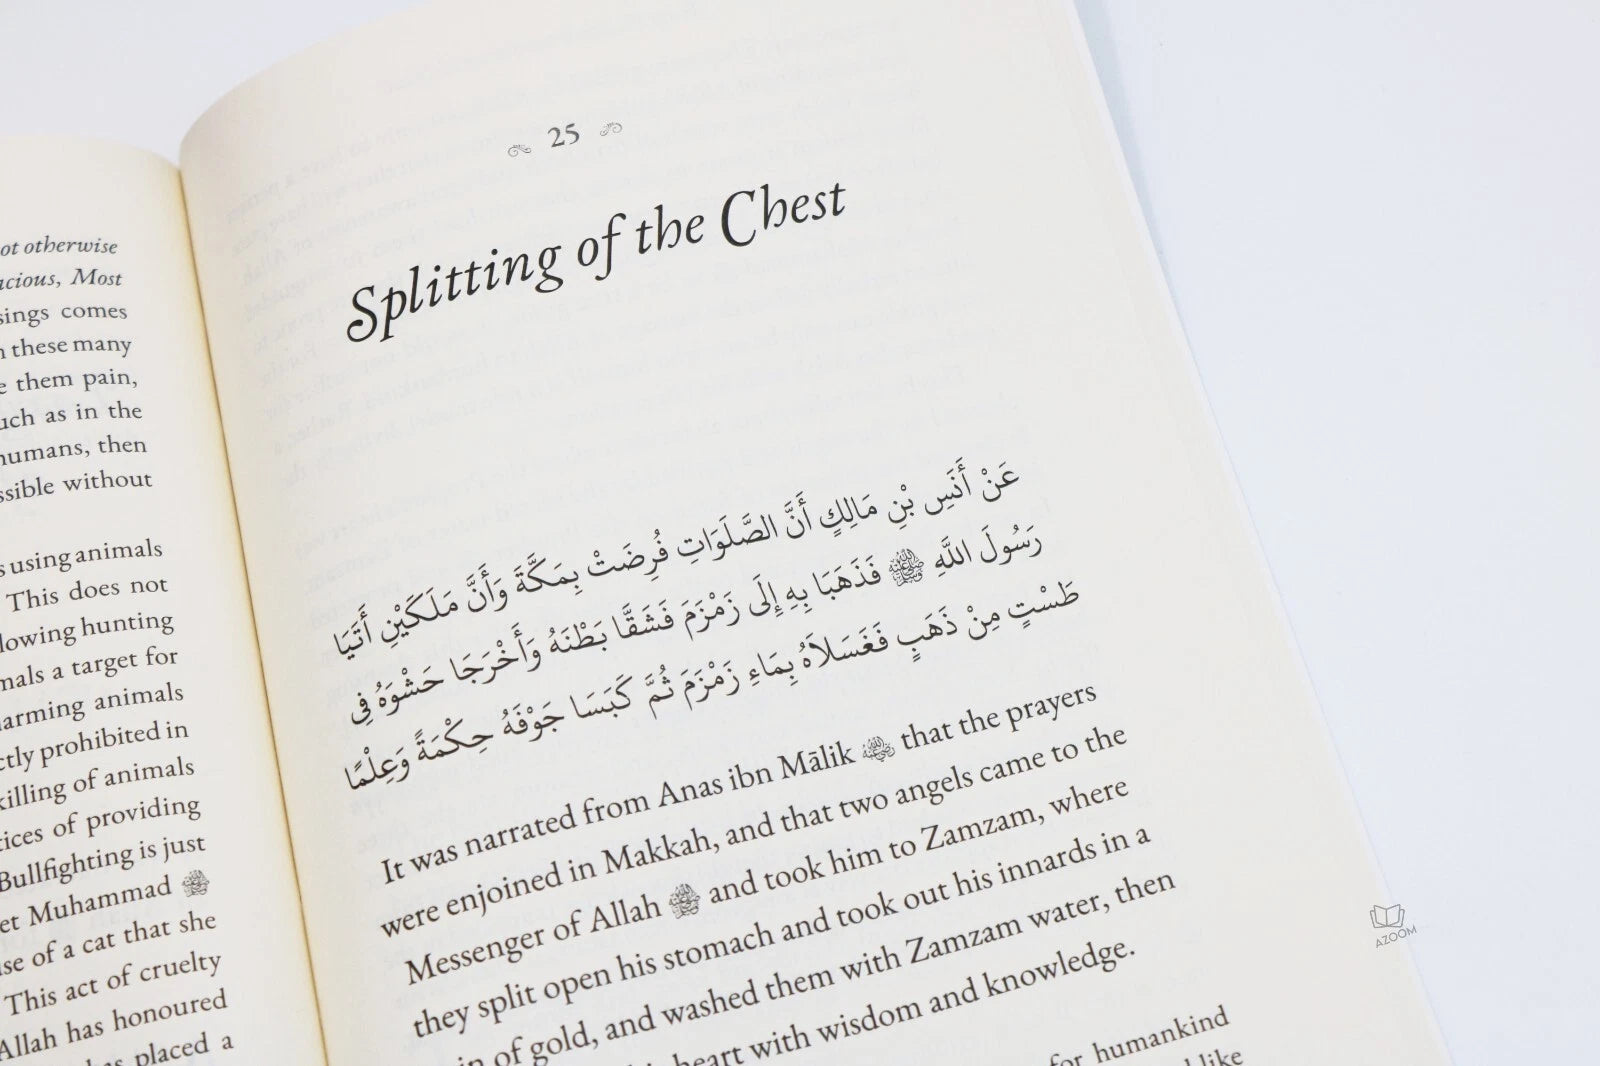 ot otherwise
acious, Most
sings comes
these many
them pain,
uch as in the
humans, then
ssible without
using animals
This does not
lowing hunting
mals a target for
arming animals
ctly prohibited in
killing of animals
tices of providing
Bullfighting is just
et Muhammad ﷺ
se of a cat that she
This act of cruelty
Allah has honoured
has placed a
25
Splitting of the Chest
عَنْ أَنَسِ بْنِ مَالِكٍ أَنَّ الصَّلَوَاتِ فُرِضَتْ بِمَكَّةَ وَأَنَّ مَلَكَيْنِ أَتَيَا
رَسُولَ اللَّهِ ﷺ فَذَهَبَا بِهِ إِلَى زَمْزَمَ فَشَقَّا بَطْنَهُ وَأَخْرَجَا حَشْوَهُ فِي
طَسْتٍ مِنْ ذَهَبٍ فَغَسَلاَهُ بِمَاءِ زَمْزَمَ ثُمَّ كَبَسَا جَوْفَهُ حِكْمَةً وَعِلْمًا
It was narrated from Anas ibn Mālik that the prayers
were enjoined in Makkah, and that two angels came to the
Messenger of Allah ﷺ and took him to Zamzam, where
they split open his stomach and took out his innards in a
in of gold, and washed them with Zamzam water, then
heart with wisdom and knowledge.
for humankind
like
AZOOM